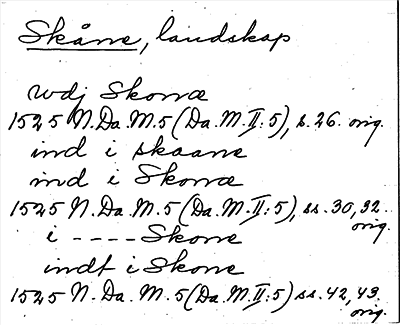 Skåne, landskap
wdj Skonæ
1525 N.Da.M.5 (Da.M.II:5), s.26. orig.
ind i skaane
ind i Skonæ
1525 N.Da.M.5 (Da.M.II:5), ss.30,32. orig.
i ---- Skone
indt i Skone
1525 N.Da.M.5 (Da.M.II:5) ss.42,43. orig.